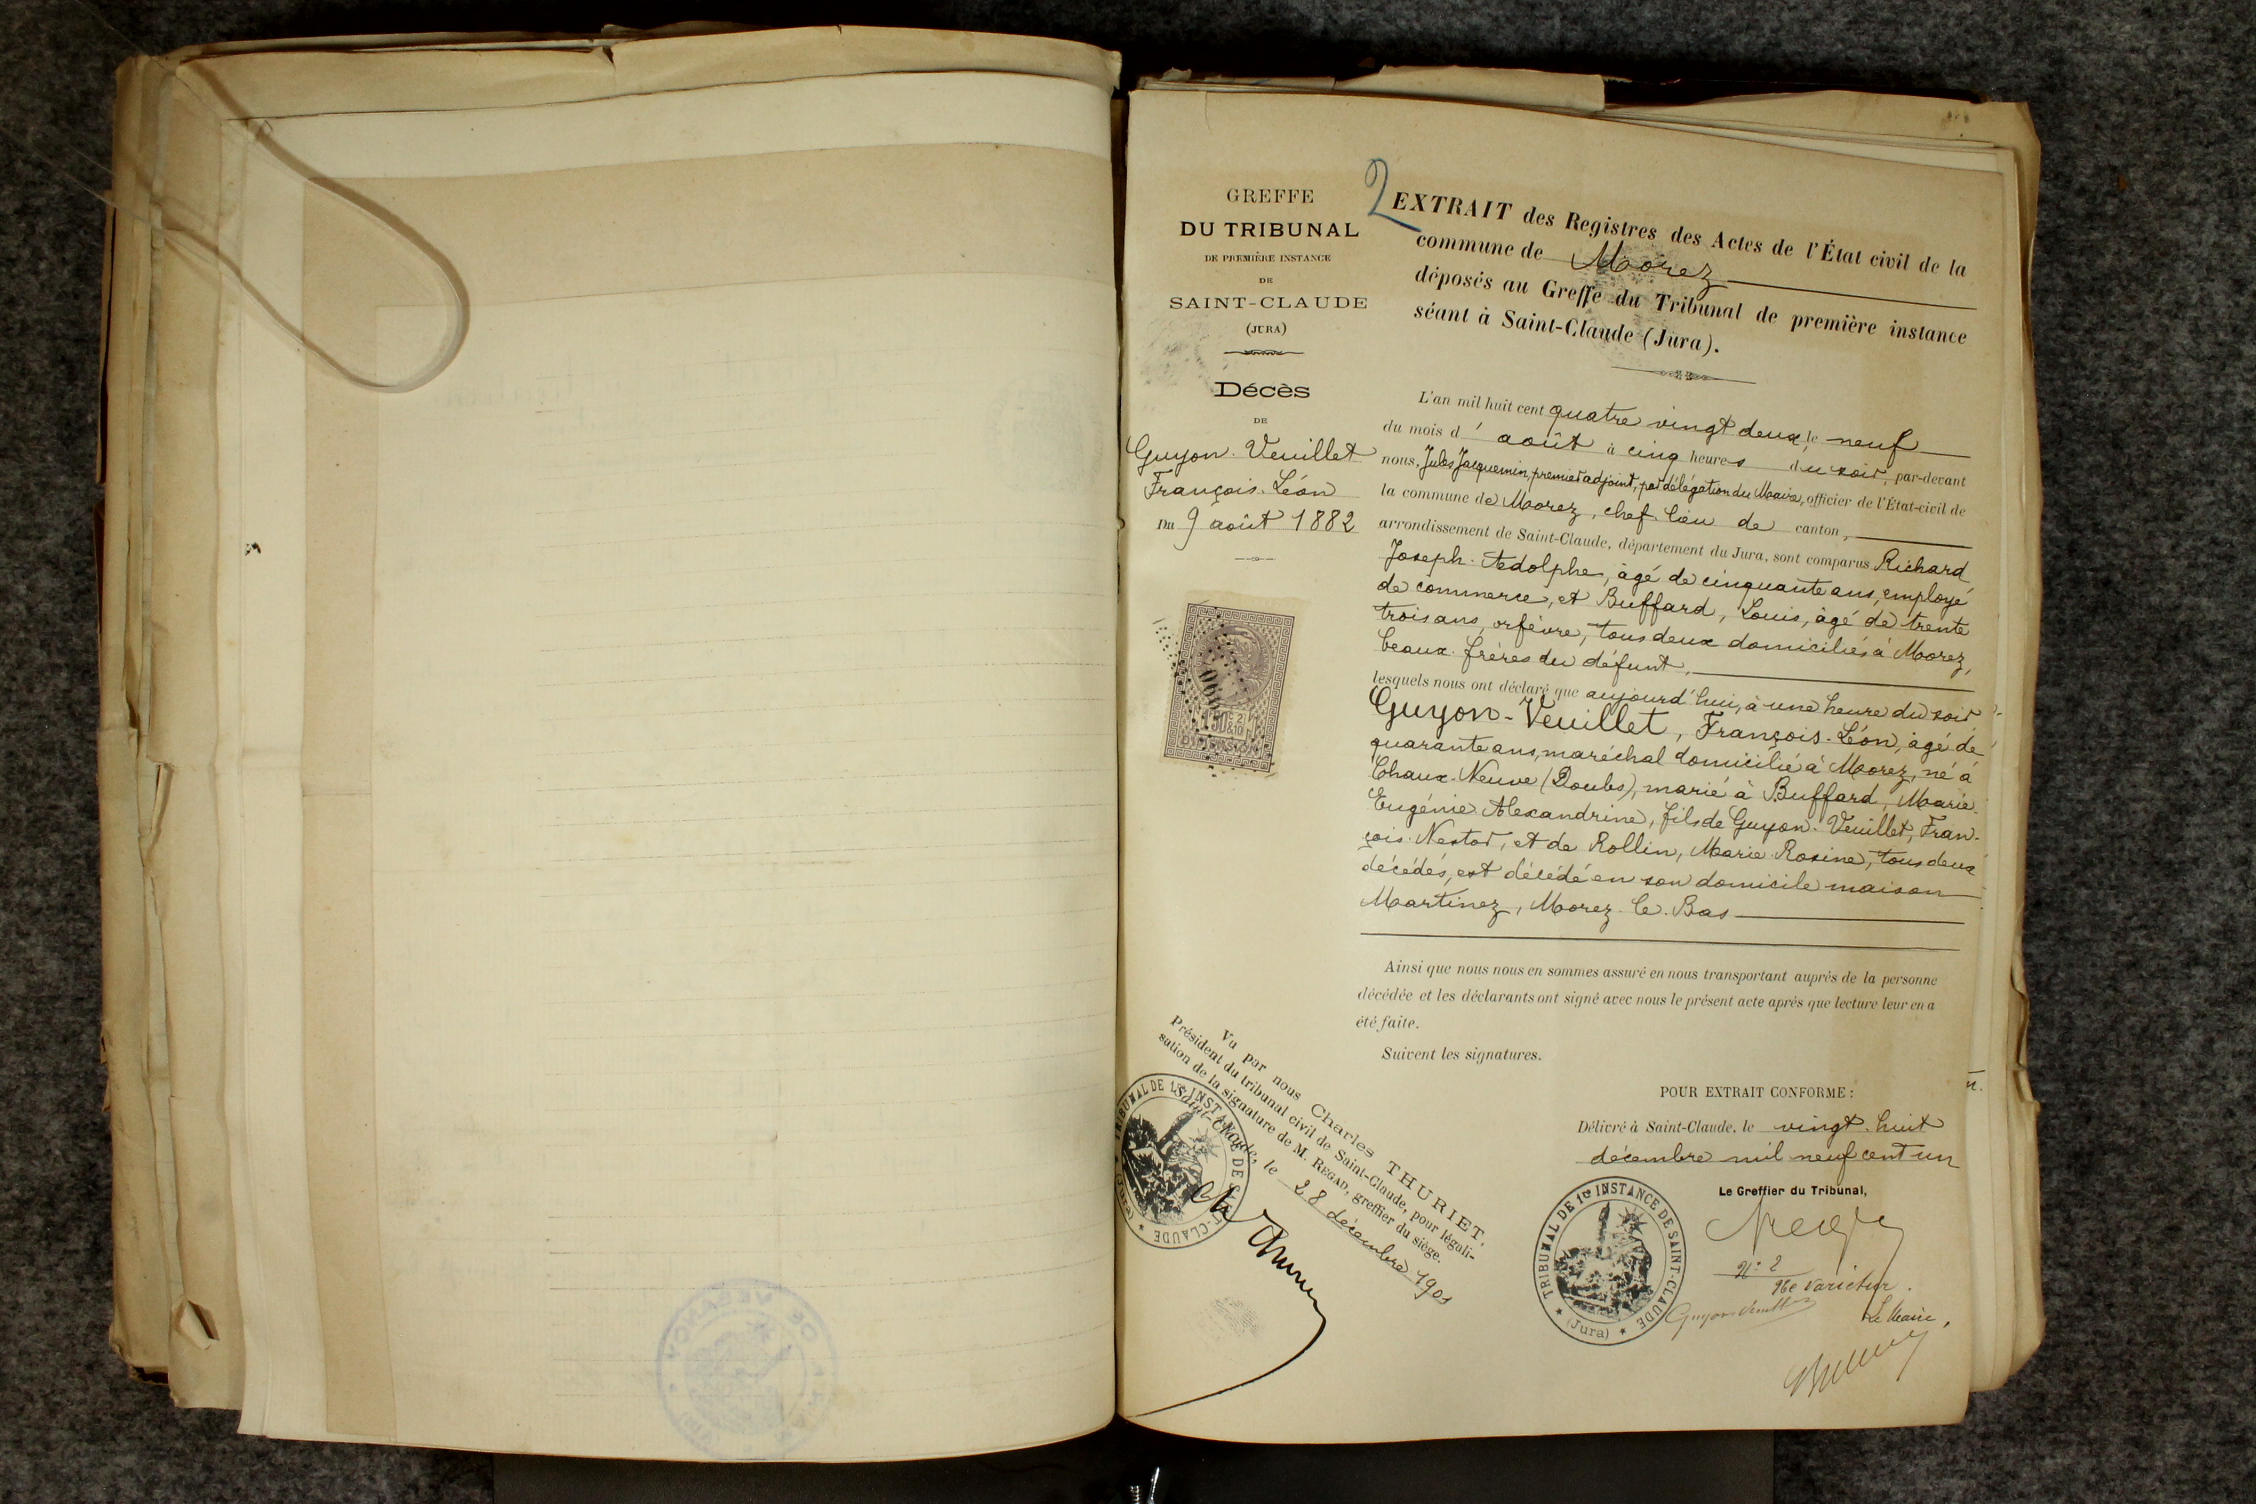 GREFFE
DU TRIBUNAL
DE PREMIÈRE INSTANCE
DE
SAINT-CLAUDE
(JURA)
Décès
DE
Guyon-Veuillet
François-Léon
Du 9 août 1882
2
EXTRAIT des Registres des Actes de l'État civil de la
commune de Morez
déposés au Greffe du Tribunal de première instance
séant à Saint-Claude (Jura).
L'an mil huit cent quatre vingt deux, le neuf
du mois d'août à cinq heures du soir, par-devant
nous, Jules Jacquemin, premier adjoint, par délégation du Maire, officier de l'État-civil de
la commune de Morez, chef-lieu de canton,
arrondissement de Saint-Claude, département du Jura, sont comparus Richard
Joseph-Adolphe, âgé de cinquante ans, employé
de commerce, et Buffard, Louis, âgé de trente
trois ans, orfèvre, tous deux domiciliés à Morez,
beaux-frères du défunt,
lesquels nous ont déclaré que aujourd'hui, à une heure du soir
Guyon-Veuillet, François-Léon, âgé de
quarante ans, maréchal domicilié à Morez, né à
Chaux-Neuve (Doubs), marié à Buffard, Marie-
Eugénie-Alexandrine, fils de Guyon-Veuillet, Fran-
çois-Nestor, et de Rollin, Marie-Rosine, tous deux
décédés, est décédé en son domicile maison
Martinez, Morez-le-Bas
Ainsi que nous nous en sommes assuré en nous transportant auprès de la personne
décédée et les déclarants ont signé avec nous le présent acte après que lecture leur en a
été faite.
Suivent les signatures.
POUR EXTRAIT CONFORME :
Délivré à Saint-Claude, le vingt-huit
décembre mil neuf cent un
Le Greffier du Tribunal,
N° 2
Ne varietur.
Guyon Veuillet
Le Maire,
TRIBUNAL DE 1re INSTANCE DE SAINT-CLAUDE
(Jura)
Vu par nous Charles THURIET,
Président du tribunal civil de Saint-Claude, pour légali-
sation de la signature de M. REGAD, greffier du siège.
Saint-Claude, le 28 décembre 1901
Ch Thuriet
TRIBUNAL DE 1re INSTANCE DE SAINT-CLAUDE
(Jura)